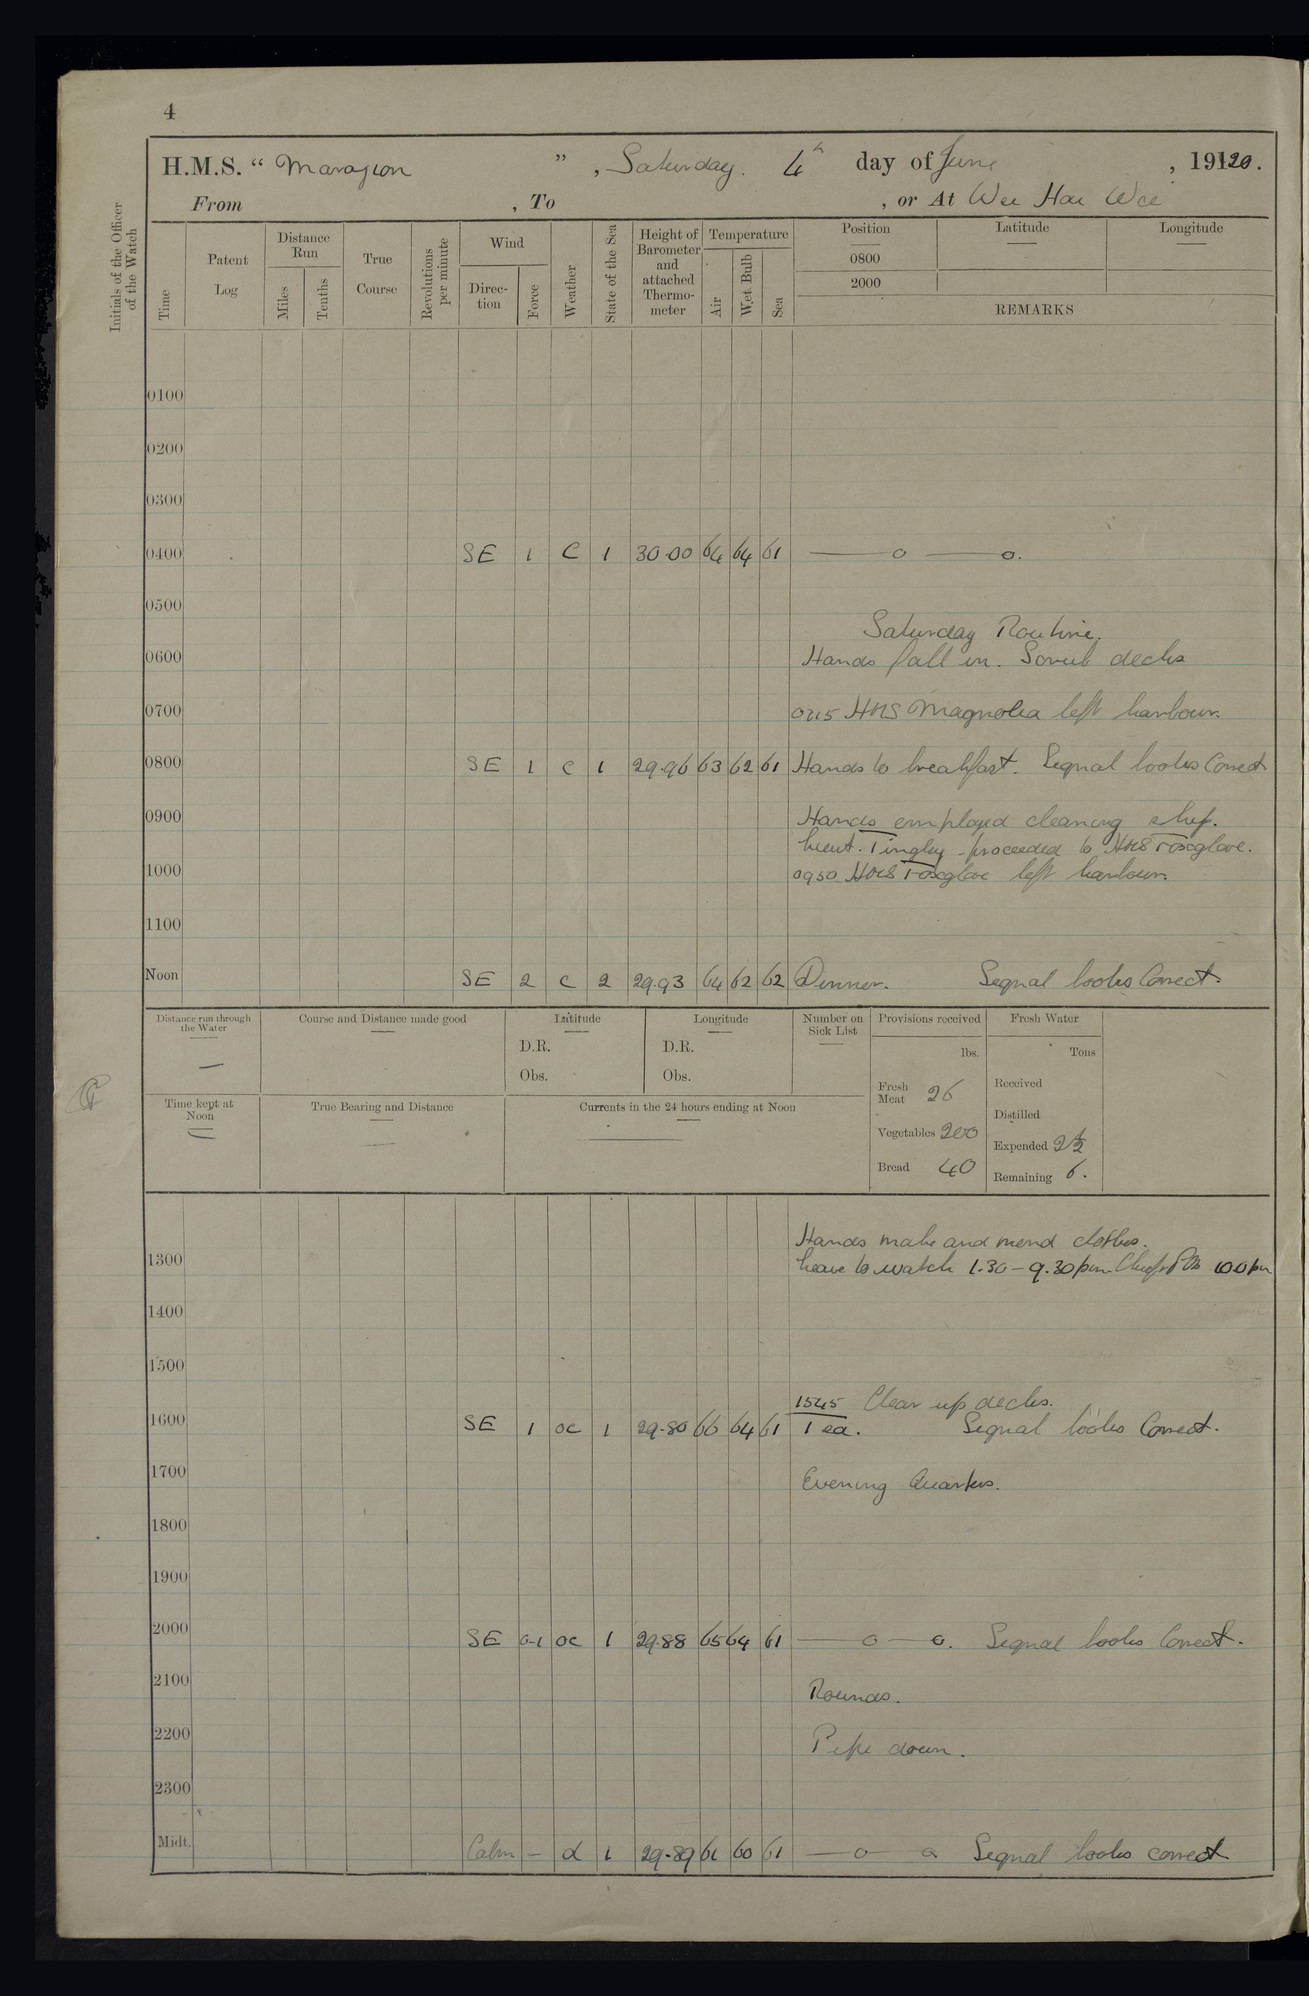 4
H.M.S. “ Marazion ” , Saturday. 4th day of June , 19120.
From , To , or At Wei Hai Wei
Initials of the Officer of the Watch
Time
Patent Log
Distance Run
Miles
Tenths
True Course
Revolutions per minute
Wind
Direc-tion
Force
Weather
State of the Sea
Height of Barometer and attached Thermo-meter
Temperature
Air
Wet Bulb
Sea
Position Latitude Longitude
0800
2000
REMARKS
0100
0200
0300
0400 SE 1 C 1 30.00 64 64 61 — o — o.
0500
Saturday Routine.
0600 Hands fall in. Scrub decks
0700 0715 HMS Magnolia left harbour.
0800 SE 1 C 1 29.96 63 62 61 Hands to breakfast. Signal books Correct
0900 Hands employed cleaning ship.
Lieut. Tingley proceeded to HMS Foxglove.
1000 0950 HMS Foxglove left harbour.
1100
Noon SE 2 C 2 29.93 64 62 62 Dinner. Signal books Correct.
Distance run through the Water —
Course and Distance made good
Latitude
D.R.
Obs.
Longitude
D.R.
Obs.
Number on Sick List
Provisions received
lbs.
Fresh Meat 26
Vegetables 200
Bread 40
Fresh Water
Tons
Received
Distilled
Expended 2½
Remaining 6.
Time kept at Noon
True Bearing and Distance
Currents in the 24 hours ending at Noon
Hands make and mend clothes.
1300 Leave to watch 1.30 – 9.30 pm. Chief & POs 10.0 pm
1400
1500
1545 Clear up decks.
1600 SE 1 oc 1 29.80 66 64 61 Tea. Signal books Correct.
1700 Evening Quarters.
1800
1900
2000 SE 0-1 oc 1 29.88 65 64 61 — o — o. Signal books Correct.
2100 Rounds.
2200 Pipe down.
2300
Midt. Calm – d 1 29.89 61 60 61 — o — o Signal books correct